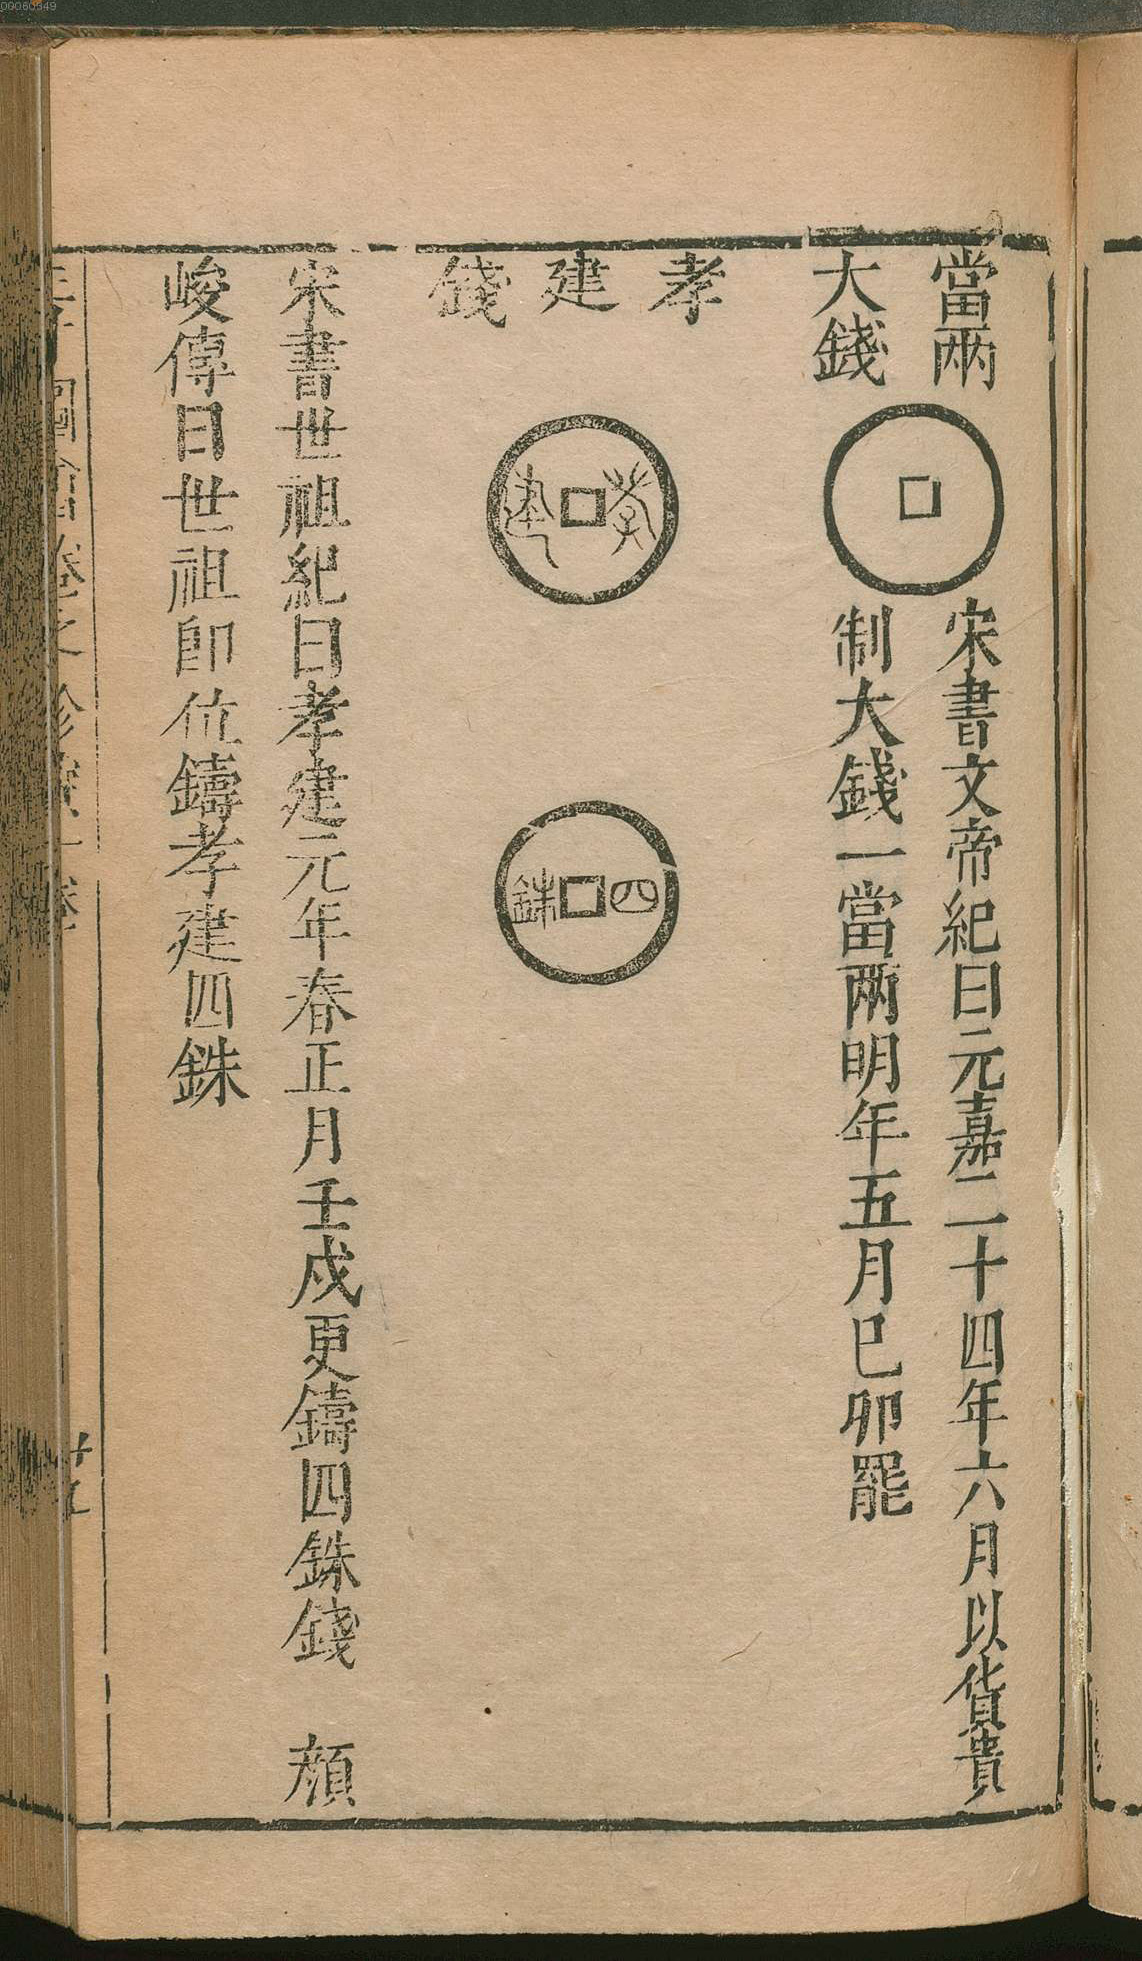 00060949
當兩
大錢
宋書文帝紀曰元嘉二十四年六月以貨貴
制大錢一當兩明年五月巳卯罷
孝建錢
孝建
四銖
宋書世祖紀曰孝建元年春正月壬戌更鑄四銖錢 顏
峻傳曰世祖卽位鑄孝建四銖
三才圖會 卷之 珍寶一卷
廿五